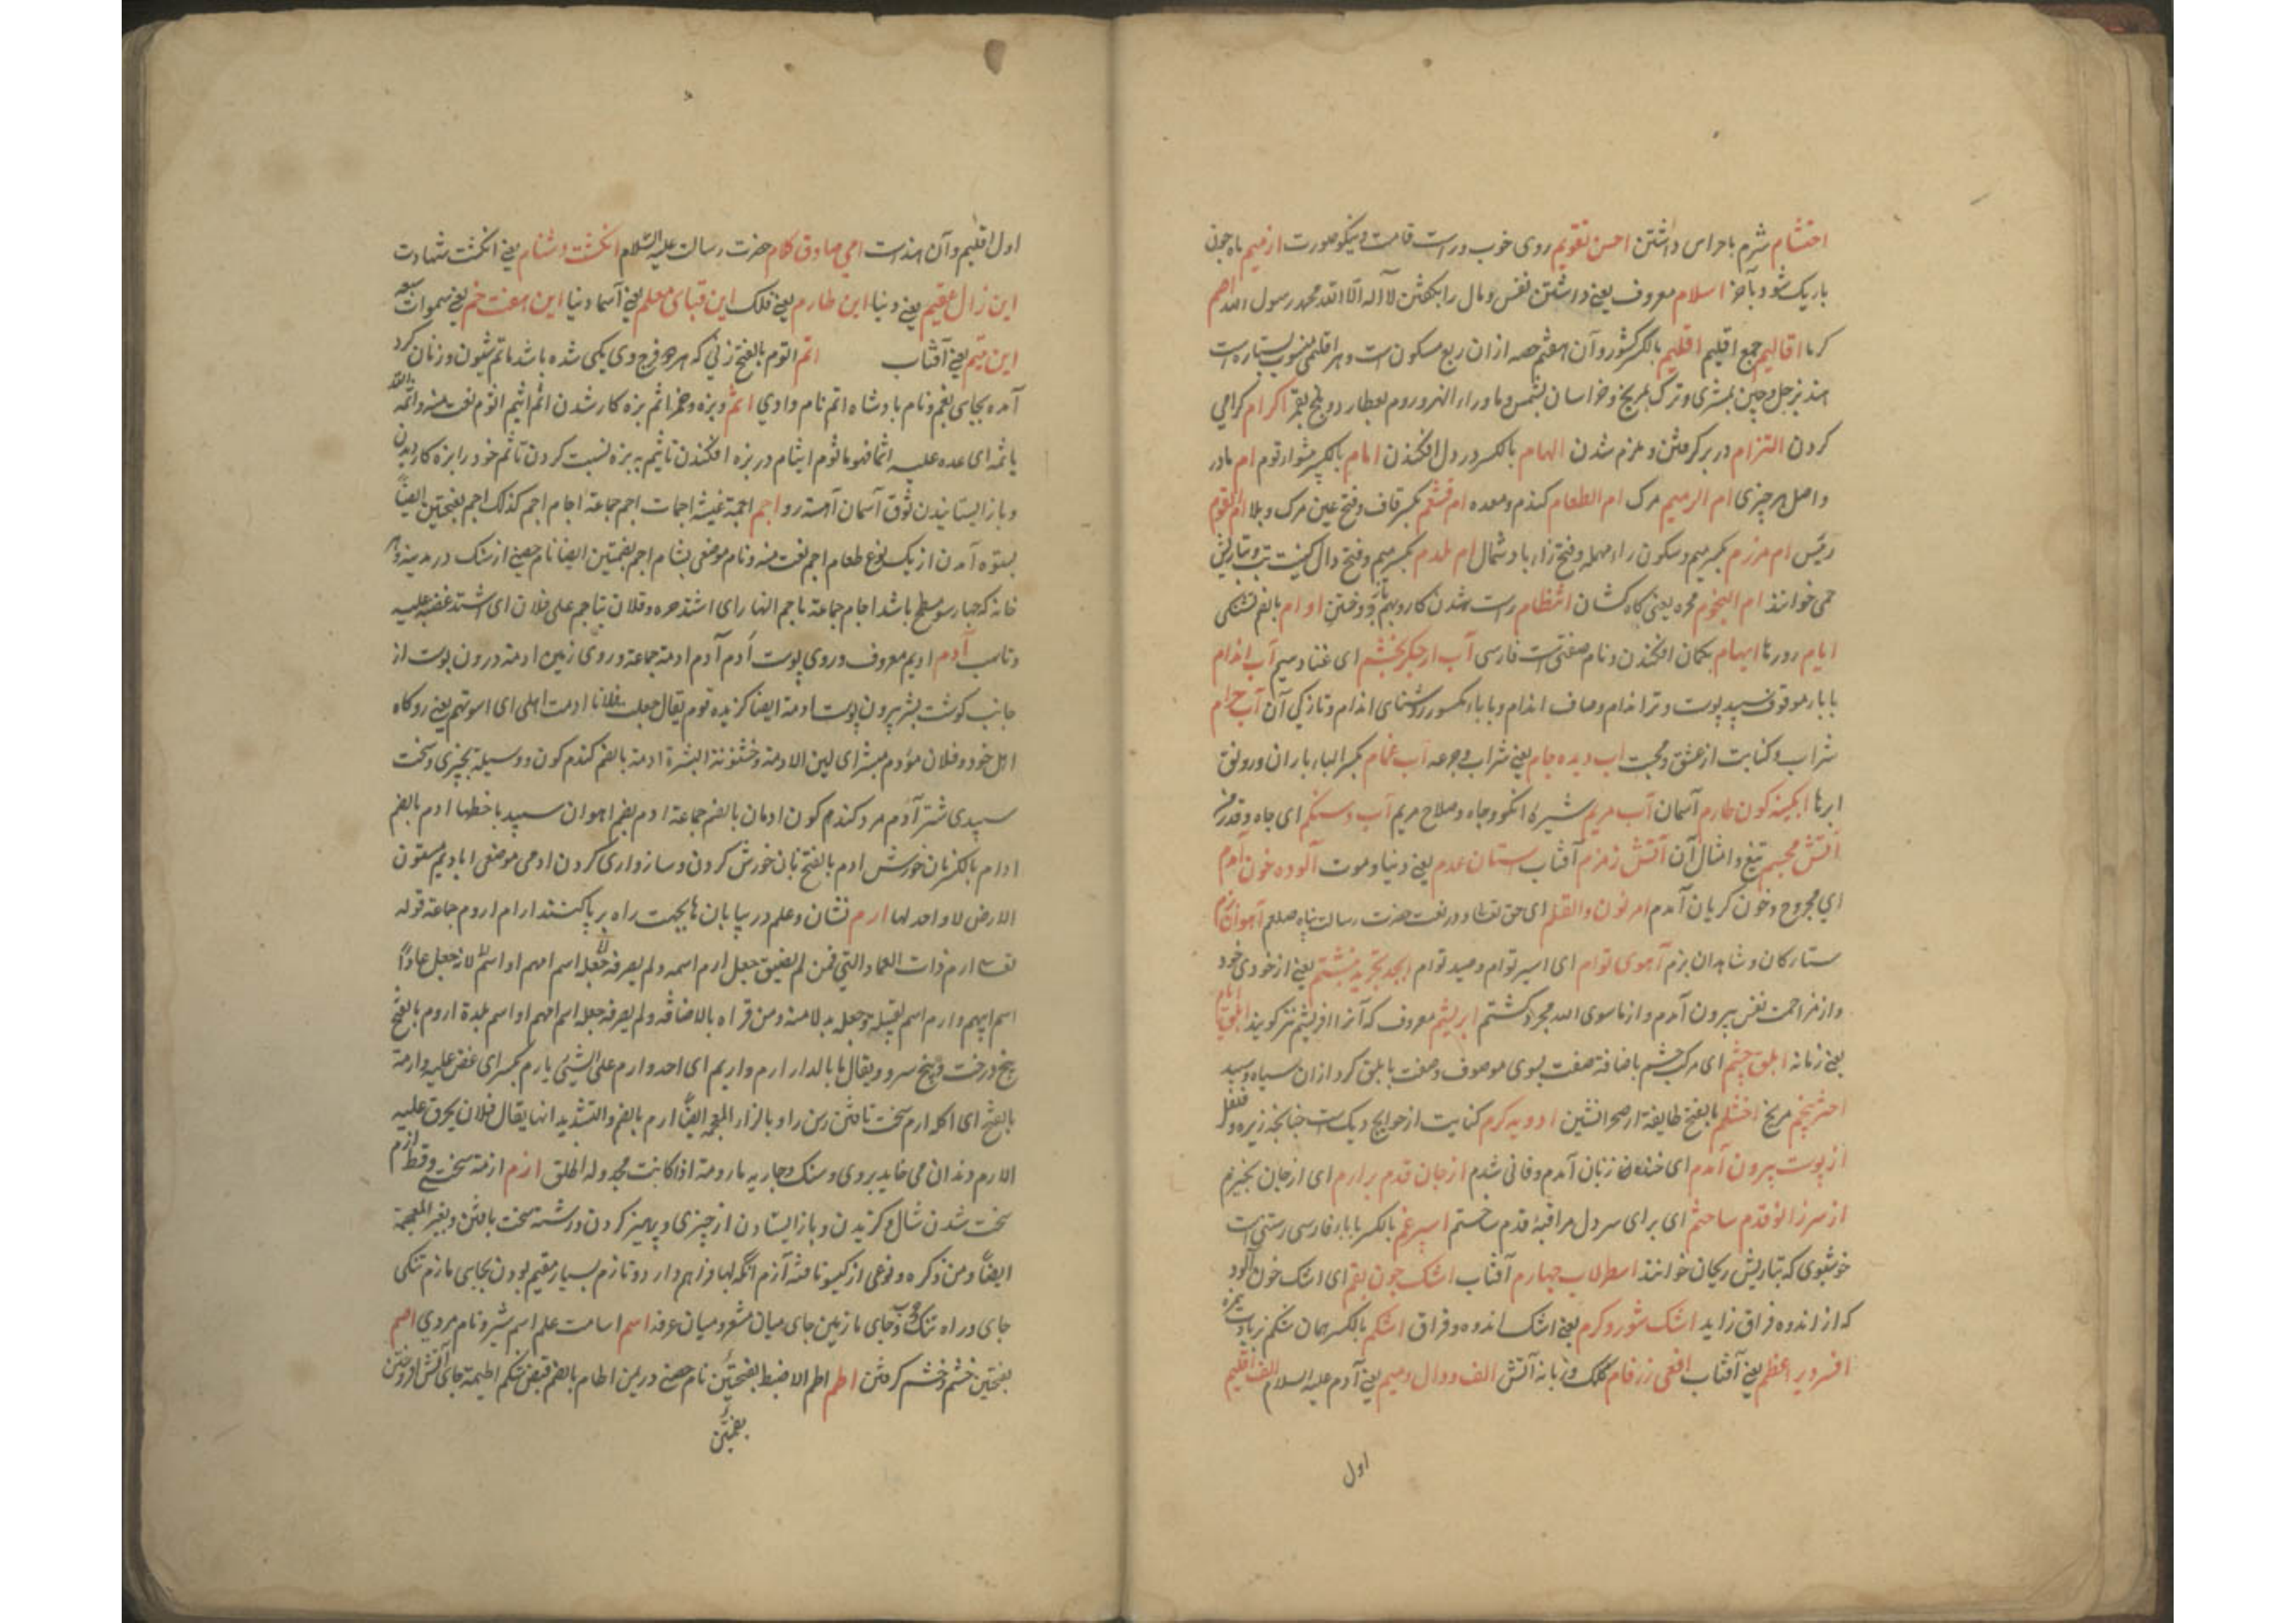 احتشام شرم با حراس داشتن احسن تقویم روی خوب و راست قامت و نیکو صورت از میم ماه چون
باریک شود و آخر اسلام معروف یعنی داشتن نفس و مال را بگفتن لا آله الا الله محمد رسول الله
کرما اقالیم جمع اقلیم اقلیم بالکسر کشور و آن هفتم حصه از ان ربع مسکون است و هر اقلیمی منسوب بستاره است
هند بزحل و چین بمشتری و ترک بمریخ و خراسان بشمس و ماوراء النهر و روم بعطارد و بلخ بقمر اکرام کرامی
کردن التزام در بر کرفتن و ملزم شدن الهام بالکسر در دل افکندن امام بالکسر پیشوا و قوم ام مادر
و اصل هر چیزی ام الرمیم مرک ام الطعام کندم و معده ام قشعم بکسر قاف و فتح عین مرک و بلا ام القوم
رئیس ام مرزم بکسر میم و سکون راء مهمله و فتح زاء باد شمال ام ملدم بکسر میم و فتح دال کنیت تب و بتازیش
حمی خوانند ام النجوم مجره یعنی کاه کشان انتظام راست شدن کار و بهم دوختن اوام بالضم تشنکی
ایام روزها ایهام بکمان افکندن و نام صنعتی است فارسی آب از جکر بخشم ای غنا و سیم آب اندام
با باء موقوف سپید پوست و تر اندام و صاف اندام و با باء مکسور روشنای اندام و تازکی آن آب حرام
شراب و کنایت از عشق و محبت اب دیده جام یعنی شراب و جرعه آب غمام بکسر الباء باران و رونق
ابرها ابکینه کون طارم آسمان آب مریم شیره انکور و جاه و صلاح مریم آب و سنکم ای جاه و قدر من
آتش مجسم تیغ و امثال آن آتش زمزم آفتاب ستان عدم یعنی دنیا و موت آلوده خون آدم
ای مجروح و خون کریان آمدم امر نون والقلم ای حق تعالی و در نعت حضرت رسالت پناه صلعم آهوان بزم
ستارکان و شاهدان بزم آهوی توام ای اسیر توام و صید توام ابجد تجرید نبشتم یعنی از خودی خود
و از مزاحمت نفس بیرون آمدم و از ماسوی الله مجرد کشتم ابریشم معروف که آنرا افریشم نیز کویند ابلق ایام
یعنی زمانه ابلق چشم ای مرک چشم باضافه صفت بسوی موصوف وصفت بابلق کرد از ان سیاه و سپید
اختر پنجم مریخ اخشلم بالفتح طایفه از صحرا نشین ادویه کرم کنایت از حوایج دیک است چنانچه زیره و فلفل
از پوست بیرون آمدم ای خنده زنان آمدم و فانی شدم از جان قدم برارم ای از جان بخیزم
از سر زانو قدم ساختم ای برای سر دل مراقبه قدم ساختم اسپرغم بالکسر با باء فارسی رستنی است
خوشبوی که بتازیش ریحان خوانند اسطرلاب چهارم آفتاب اشک چون بقم ای اشک خون آلود
که از اندوه فراق زاید اشک شور و کرم یعنی اشک اندوه و فراق اشکم بالکسر همان شکم بزیادت همزه
افسر دیر اعظم یعنی آفتاب افعی زرفام کلک و زبانه آتش الف و دال و میم یعنی آدم علیه السلام الف اقلیم
اول
اول اقلیم و آن هند است امی صادق کلام حضرت رسالت علیه السلام انکشت دشنام یعنی انکشت شهادت
این زال عقیم یعنی دنیا این طارم یعنی فلک این قبای معلم یعنی آسما دنیا این هفت خم یعنی سموات سبعه
این میم یعنی آفتاب اتم اتوم بالفتح زنی که هر دو فرج وی یکی شده باشد ماتم شیون و زنان کرد
آمده بجای غم و نام بادشاه اتم نام وادی اثم و بزه و خمر اثم بزه کار شدن اثم اثیم اثوم نعت منه و اثمه الله
یاثمه ای عده علیه اثما فهو ماثوم ایثام در بزه افکندن تاثیم به بزه نسبت کردن تاثم خود را بزه کار دیدن
و باز ایستانیدن ثوق آسمان آهسته رو اجم اجمة غیشه اجمات اجم جماعة اجام اجم کذلک اجم بفتحتین ایضا
بستوه آمدن از یک نوع طعام اجم نعت منه و نام موضعی بشام اجم بضمتین ایضا نام حصنی از سنک در مدینه و هر
خانه که چهار سو مسطح باشد اجام جماعة تاجم النهار ای اشتد حره و فلان یتاجم علی فلان ای اشتد غضبه علیه
آدم ادیم معروف و روی پوست اَدم آدم ادمة جماعة و روی زمین ادمة درون پوست از
جانب کوشت بشره بیرون پوست ادمة ایضا کزیده قوم یقال جعلت فلانا ادمت اهلی ای اسوتهم یعنی روکاه
اهل خود و فلان مؤدم مبشر ای لین الادمة و خشونة البشرة ادمة بالضم کندم کون و وسیله بچیزی و سخت
سپیدی شتر آدم مرد کندم کون ادمان بالضم جماعة ادم بضم اهوان سپید با خطها ادم بالضم
ادام بالکسر نان خورش ادم بالفتح نان خورش کردن و سازواری کردن ادمی موضعی ایادیم متون
الارض لا واحد لها ارم نشان و علم در بیابان ها بجهت راه بر پا کنند ارام اروم جماعة قوله
تعالی ارم ذات العماد التی فمن لم یضیق جعل ارم اسمه ولم یصرفه جعله اسم امهم او اسم لانه جعل عادًا
اسم ابیهم و ارم اسم لقبیله و جعله بدلا منه و من قراه بالاضافه ولم یصرفه جعله اسم امهم او اسم بلدة اروم بالفتح
بیخ درخت و بیخ سرو و یقال ما بالدار ارم و اریم ای احد و ارم علی الشیئ یارم بکسر ای عض علیه و ارمة
بالفتح ای اکله ارم سخت تافتن رسن را و بالزاء المعجمه ایضًا ارم بالضم و التشدید انها یقال فلان یحرق علیه
الارم دندان می خاید بروی و سنک و جاریه مارومة اذا کانت مجدولة الخلق ازم ازمة سختی و قحط ازم
سخت شدن شال و کزیدن و باز ایستادن از چیزی و پرهیز کردن و رشته سخت بافتن و بغیر المعجمة
ایضًا و من ذکره و نوعی از کیسو تافته آزم انکه لبها فراهم دارد و تازم بسیار مقیم بودن بجایی مازم تنکی
جای و راه تنک و جای مازمین جای میان مشعر و میان عرفه اسم اسامت علم اسم شیر و نام مردی اضم
بفتحتین خشم و خشم کرفتن اطم اطم الاضبط بضمتین نام حصنی در یمن اطام بالضم قبض شکم اطیمة جای آتش افروختن
بضمتین